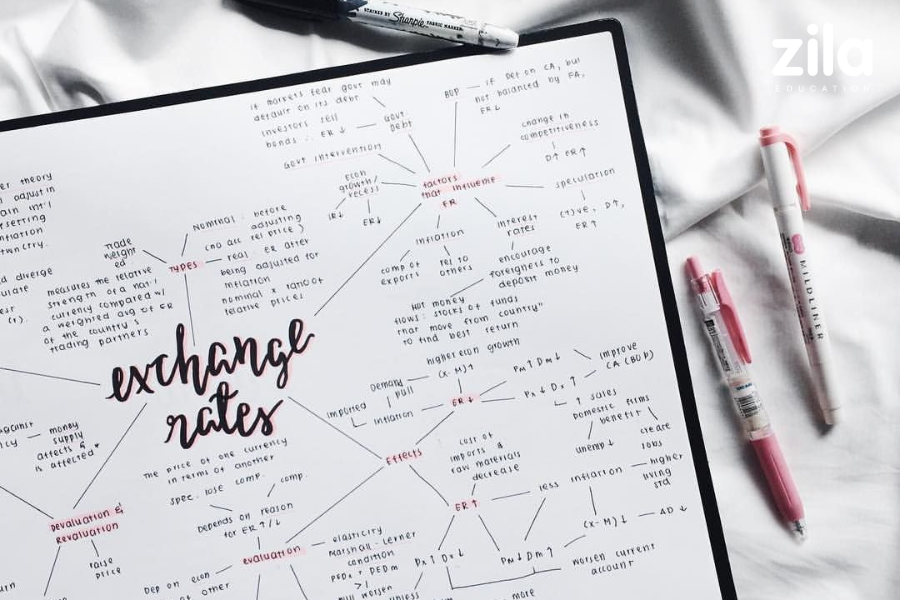 zila
EDUCATION
Sharpie
FABRIC MARKER
it markets fear govt may
default on its debt
investors sell
bonds ∴ ER ↓
govt.
debt
govt intervention
Econ
growth/
recess
IR↓
ER↓
BOP
if def on CA, but
not balanced by FA,
ER↓
change in
competitiveness
D↑ ER↑
factors
that influence
ER
speculation
(+)ve, D↑,
ER↑
inflation
comp of
exports
rel to
others
interest
rates
encourage
foreigners to
deposit money
Hot money
flows: stocks of funds
that move from country"
to find best return
er theory
adjust in
ain int'l
setting
nflation
wn cntry.
diverge
ulate
est
(r).
trade
weight
ed
TYPES
nominal: before
adjusting
(no acc rel price)
real: ER after
being adjusted for
inflation
nominal x ratio of
relative prices
measures the relative
strength of a nat'l
currency compared w/
a weighted avg of ER
of the country's
trading partners
exchange
rates
the price of one currency
in terms of another
against
cy
money
supply
affects &
is affected
Devaluation &
Revaluation
raise
price
spec. lose comp.
comp.
Depends on reason
for ER↑/↓
evaluation
Dep on econ
of other
elasticity
Marshall-Lerner
condition
PEDx + PEDm
>1
will worsen
unless
more
Effects
higher econ growth
(X-M)↑
Demand
pull
imported
inflation
ER↓
Pm↑ Dm↓
Px↓ Dx↑
improve
CA (BOP)
↑ sales
domestic firms
benefit
unemp↓
create
jobs
cost of
imports &
raw materials
decrease
ER↑
less inflation
higher
living
std
(X-M)↓
AD↓
Px↑ Dx↓
Pm↓ Dm↑
worsen current
account
MILDLINER